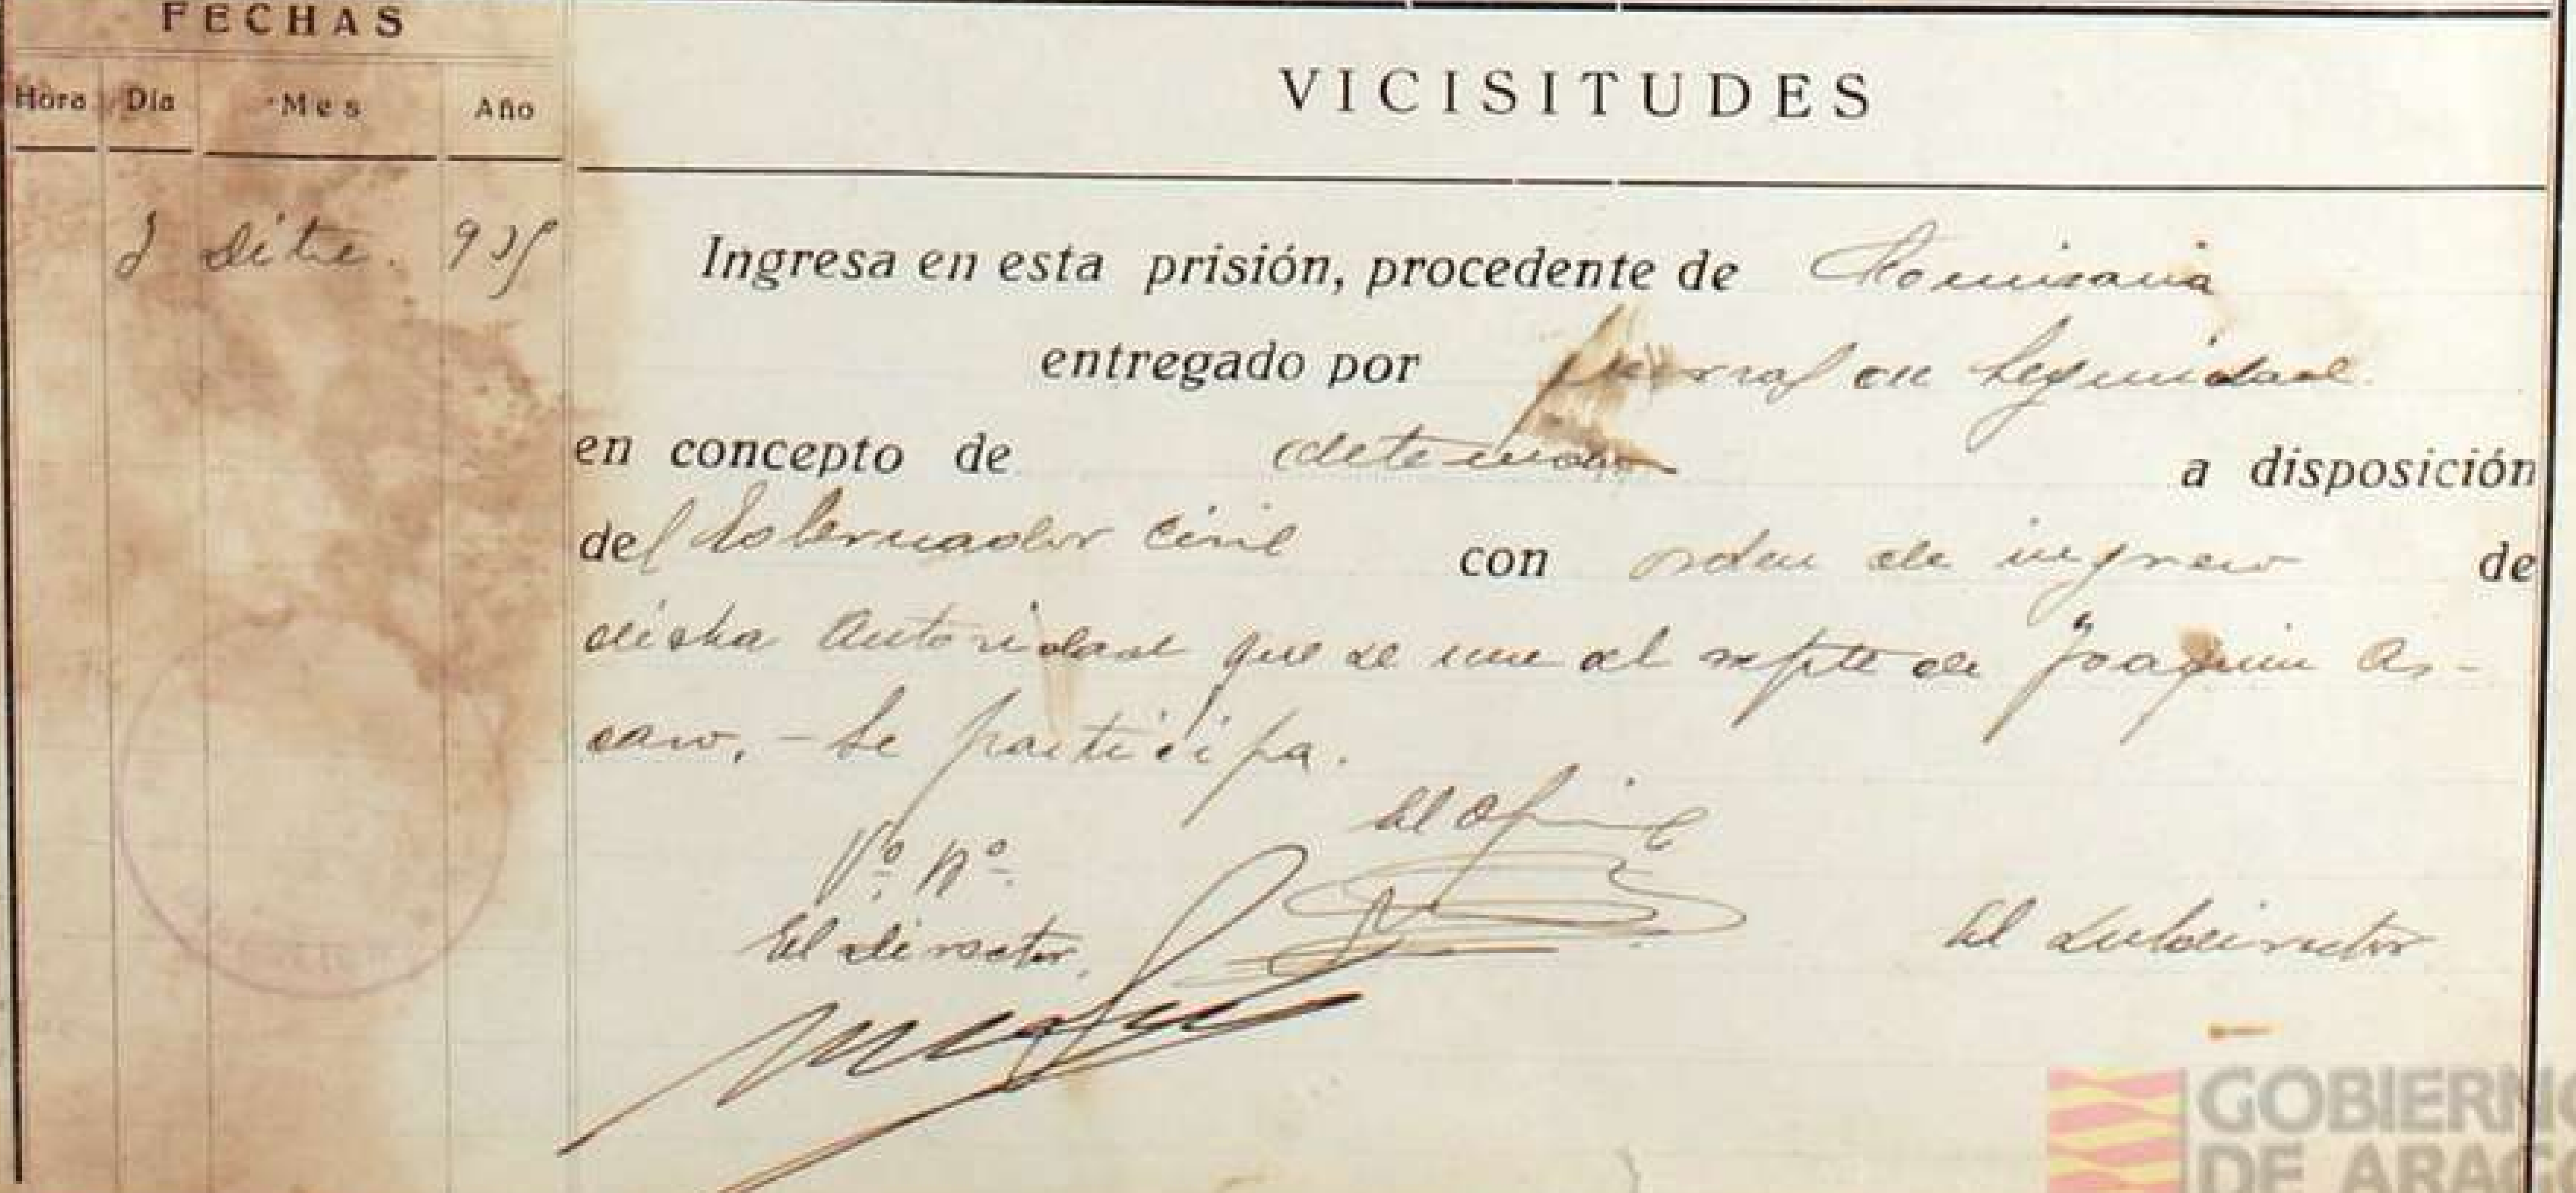 FECHAS
VICISITUDES
Hora Día Mes Año
Ingresa en esta prisión, procedente de Comisaria
entregado por fuerzas de Seguridad
en concepto de detenido a disposición
del Gobernador Civil con orden de ingreso de
dicha Autoridad que se une al expte de Joaquin As-
caso. - Se participa.
El Oficial
Vº Bº
El Director,
El Subdirector
GOBIERNO
DE ARAG